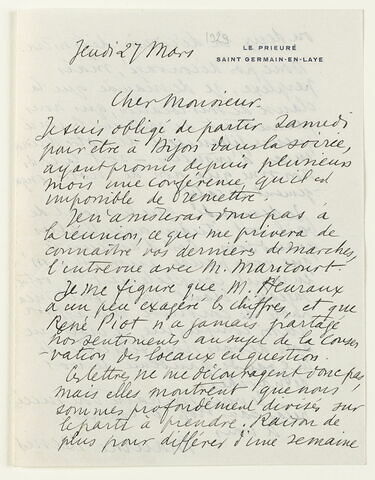 Jeudi 27 Mars
1929
LE PRIEURÉ
SAINT GERMAIN-EN-LAYE
Cher Monsieur.
Je suis obligé de partir Samedi
pour être à Dijon dans la soirée,
ayant promis depuis plusieurs
mois une conférence, qu'il est
impossible de remettre.
Je n'assisterai donc pas à
la réunion, ce qui me privera de
connaître vos dernières démarches,
l'entrevue avec M. Maricourt.
Je me figure que M. Heuraux
a un peu exagéré les chiffres, et que
René Piot n'a jamais partagé
nos sentiments au sujet de la Conser
vation des locaux en question.
Ces lettres ne me découragent donc pas
mais elles montrent que nous
sommes profondément divisés sur
le parti à prendre. Raison de
plus pour différer d'une semaine